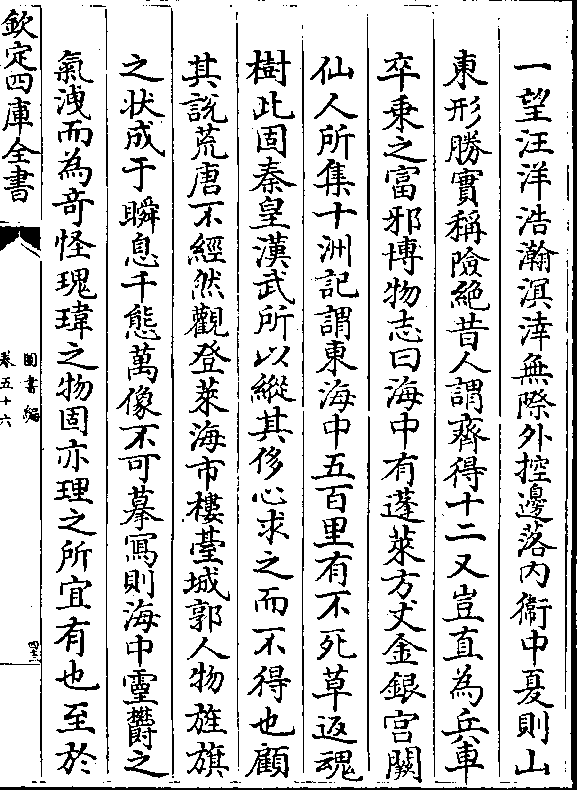 一望汪洋浩瀚溟涬無際外控邊落内衛中夏則山
東形勝實稱險絶昔人謂齊得十二又豈直為兵車
卒乗之富邪博物志曰海中有蓬萊方丈金銀宫闕
仙人所集十洲記謂東海中五百里有不死草返魂
樹此固秦皇漢武所以縱其侈心求之而不得也顧
其説荒唐不經然觀登萊海市樓臺城郭人物旌旗
之状成于瞬息千態萬像不可摹寫則海中靈欝之
氣洩而為竒怪瑰瑋之物固亦理之所宜有也至於
欽定四庫全書
圖書編
卷五十六